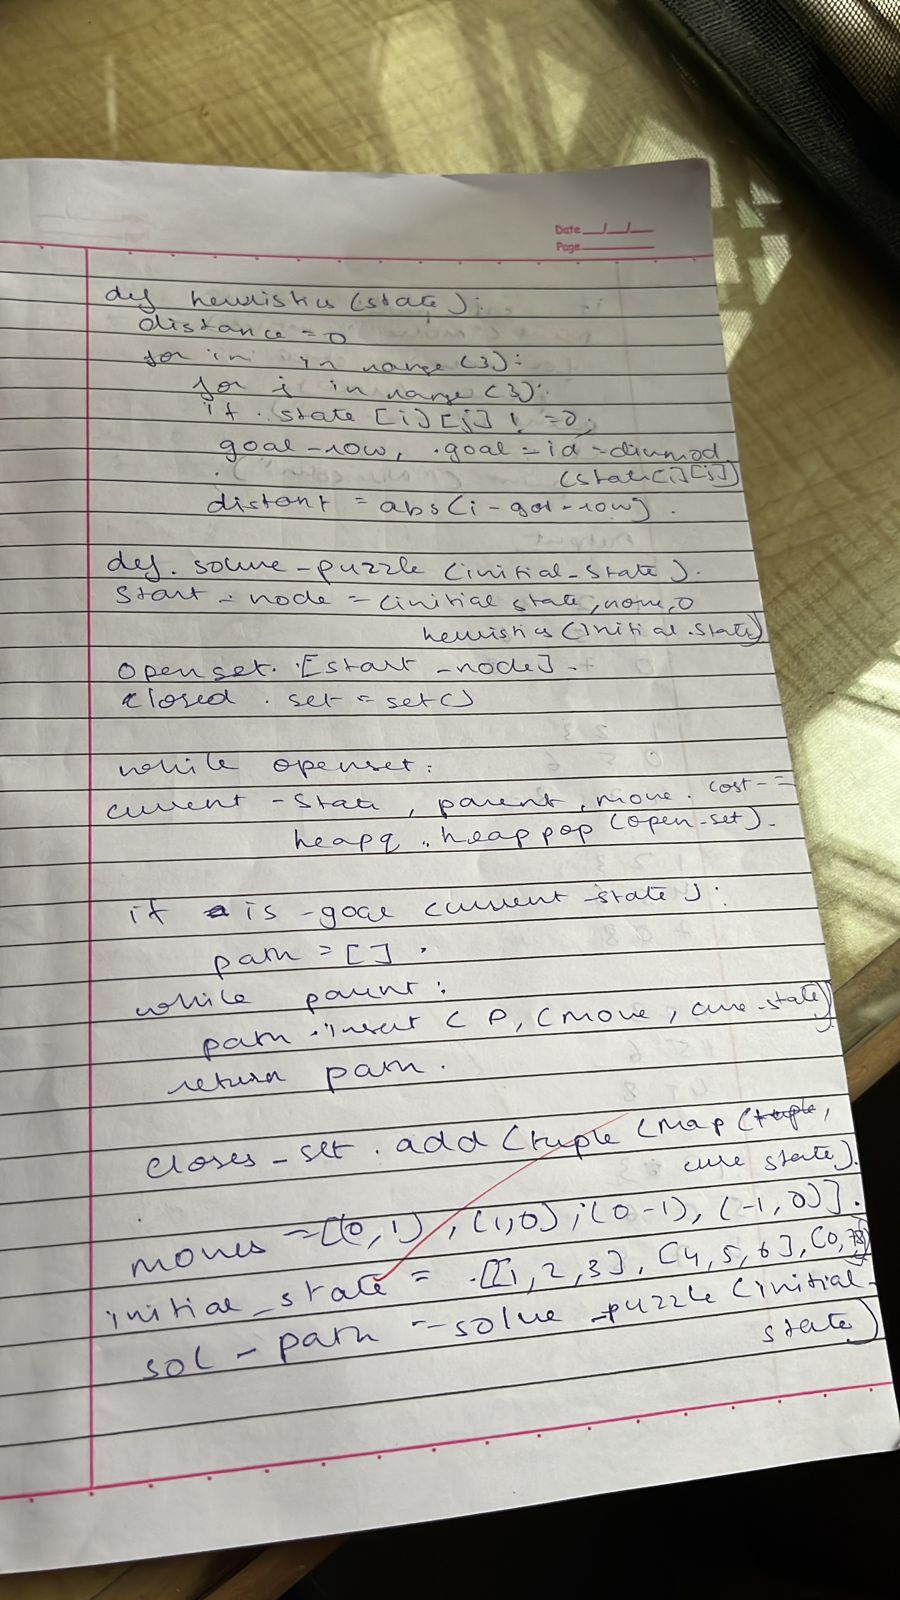 Date __/__/__
Page
def heuristics (state):
distance = 0
for in in range (3):
for j in range (3):
if . state [i][j] ! =0;
goal -row, .goal = id = divmod
(state[i][j])
distant = abs(i - gol - row) .
def. solve - puzzle (initial-state).
Start - node = (initial state, none, 0
heuristics (initial.state)
open set. [start -node] .
closed . set = set()
while openset:
current - state , parent, move . cost - =
heapq .. heap pop (open-set).
if is -goal current -state):
path = [ ] .
while parent:
path . insert ( 0, (move, curr-state)
return path.
closes - set . add (tuple (map (tuple,
curr state).
moves = [(0,1) , (1,0) , (0 -1), (-1, 0)].
initial _ state = .[[1, 2, 3], [4, 5, 6], [0,
sol - path - solve _puzzle (initial-
state)